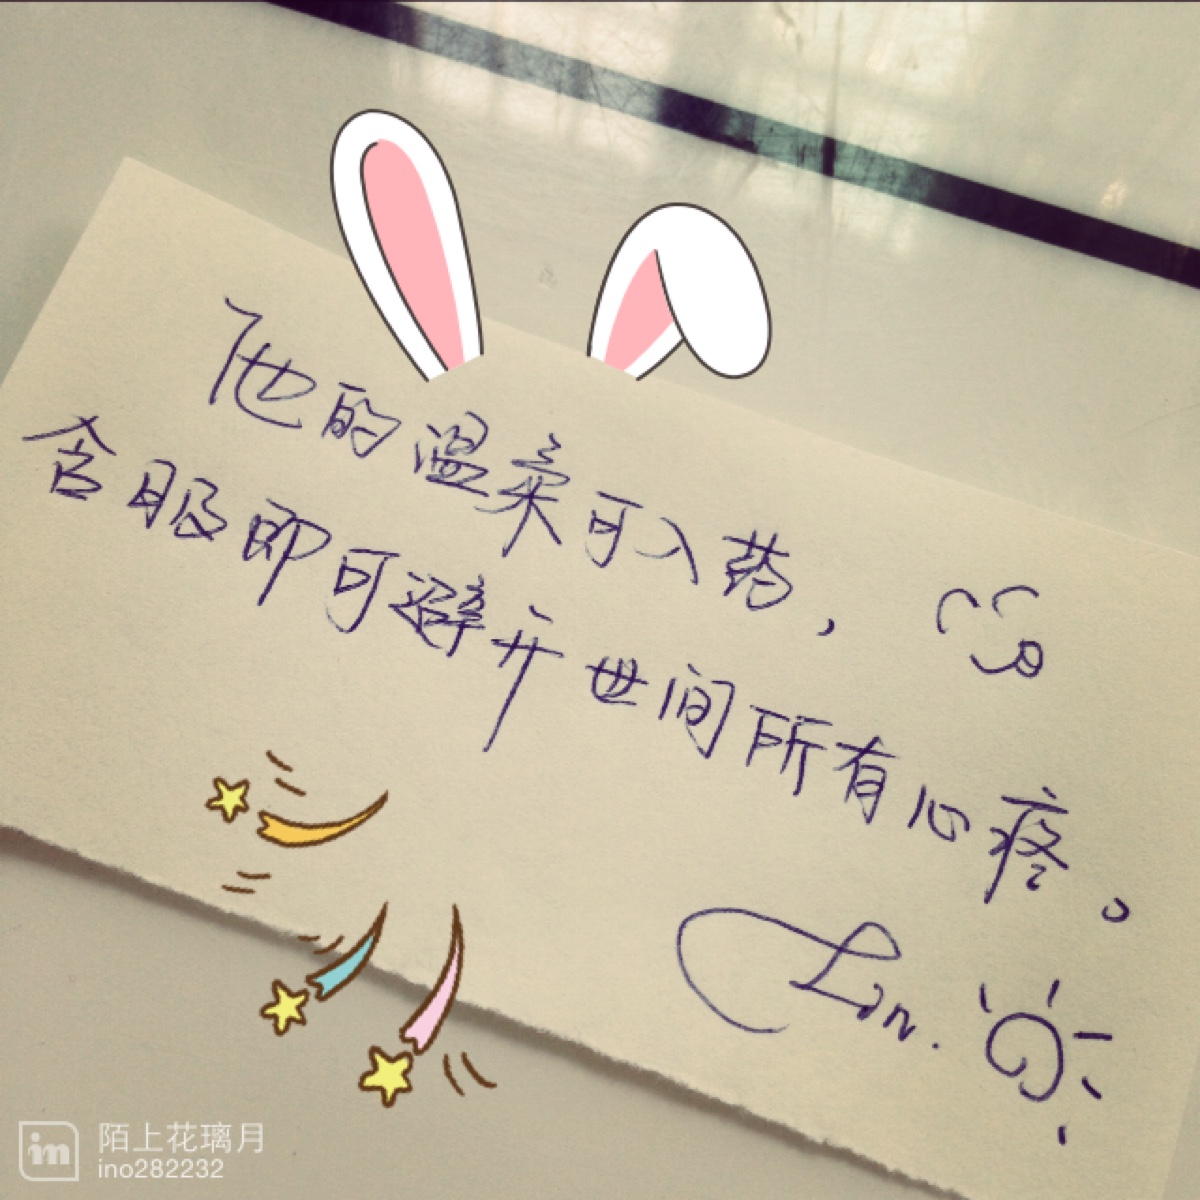 他的温柔可入药，
含服即可避开世间所有心疼。
Lin.
陌上花璃月
ino282232